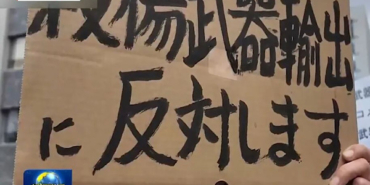 殺傷武器輸出
に反対します